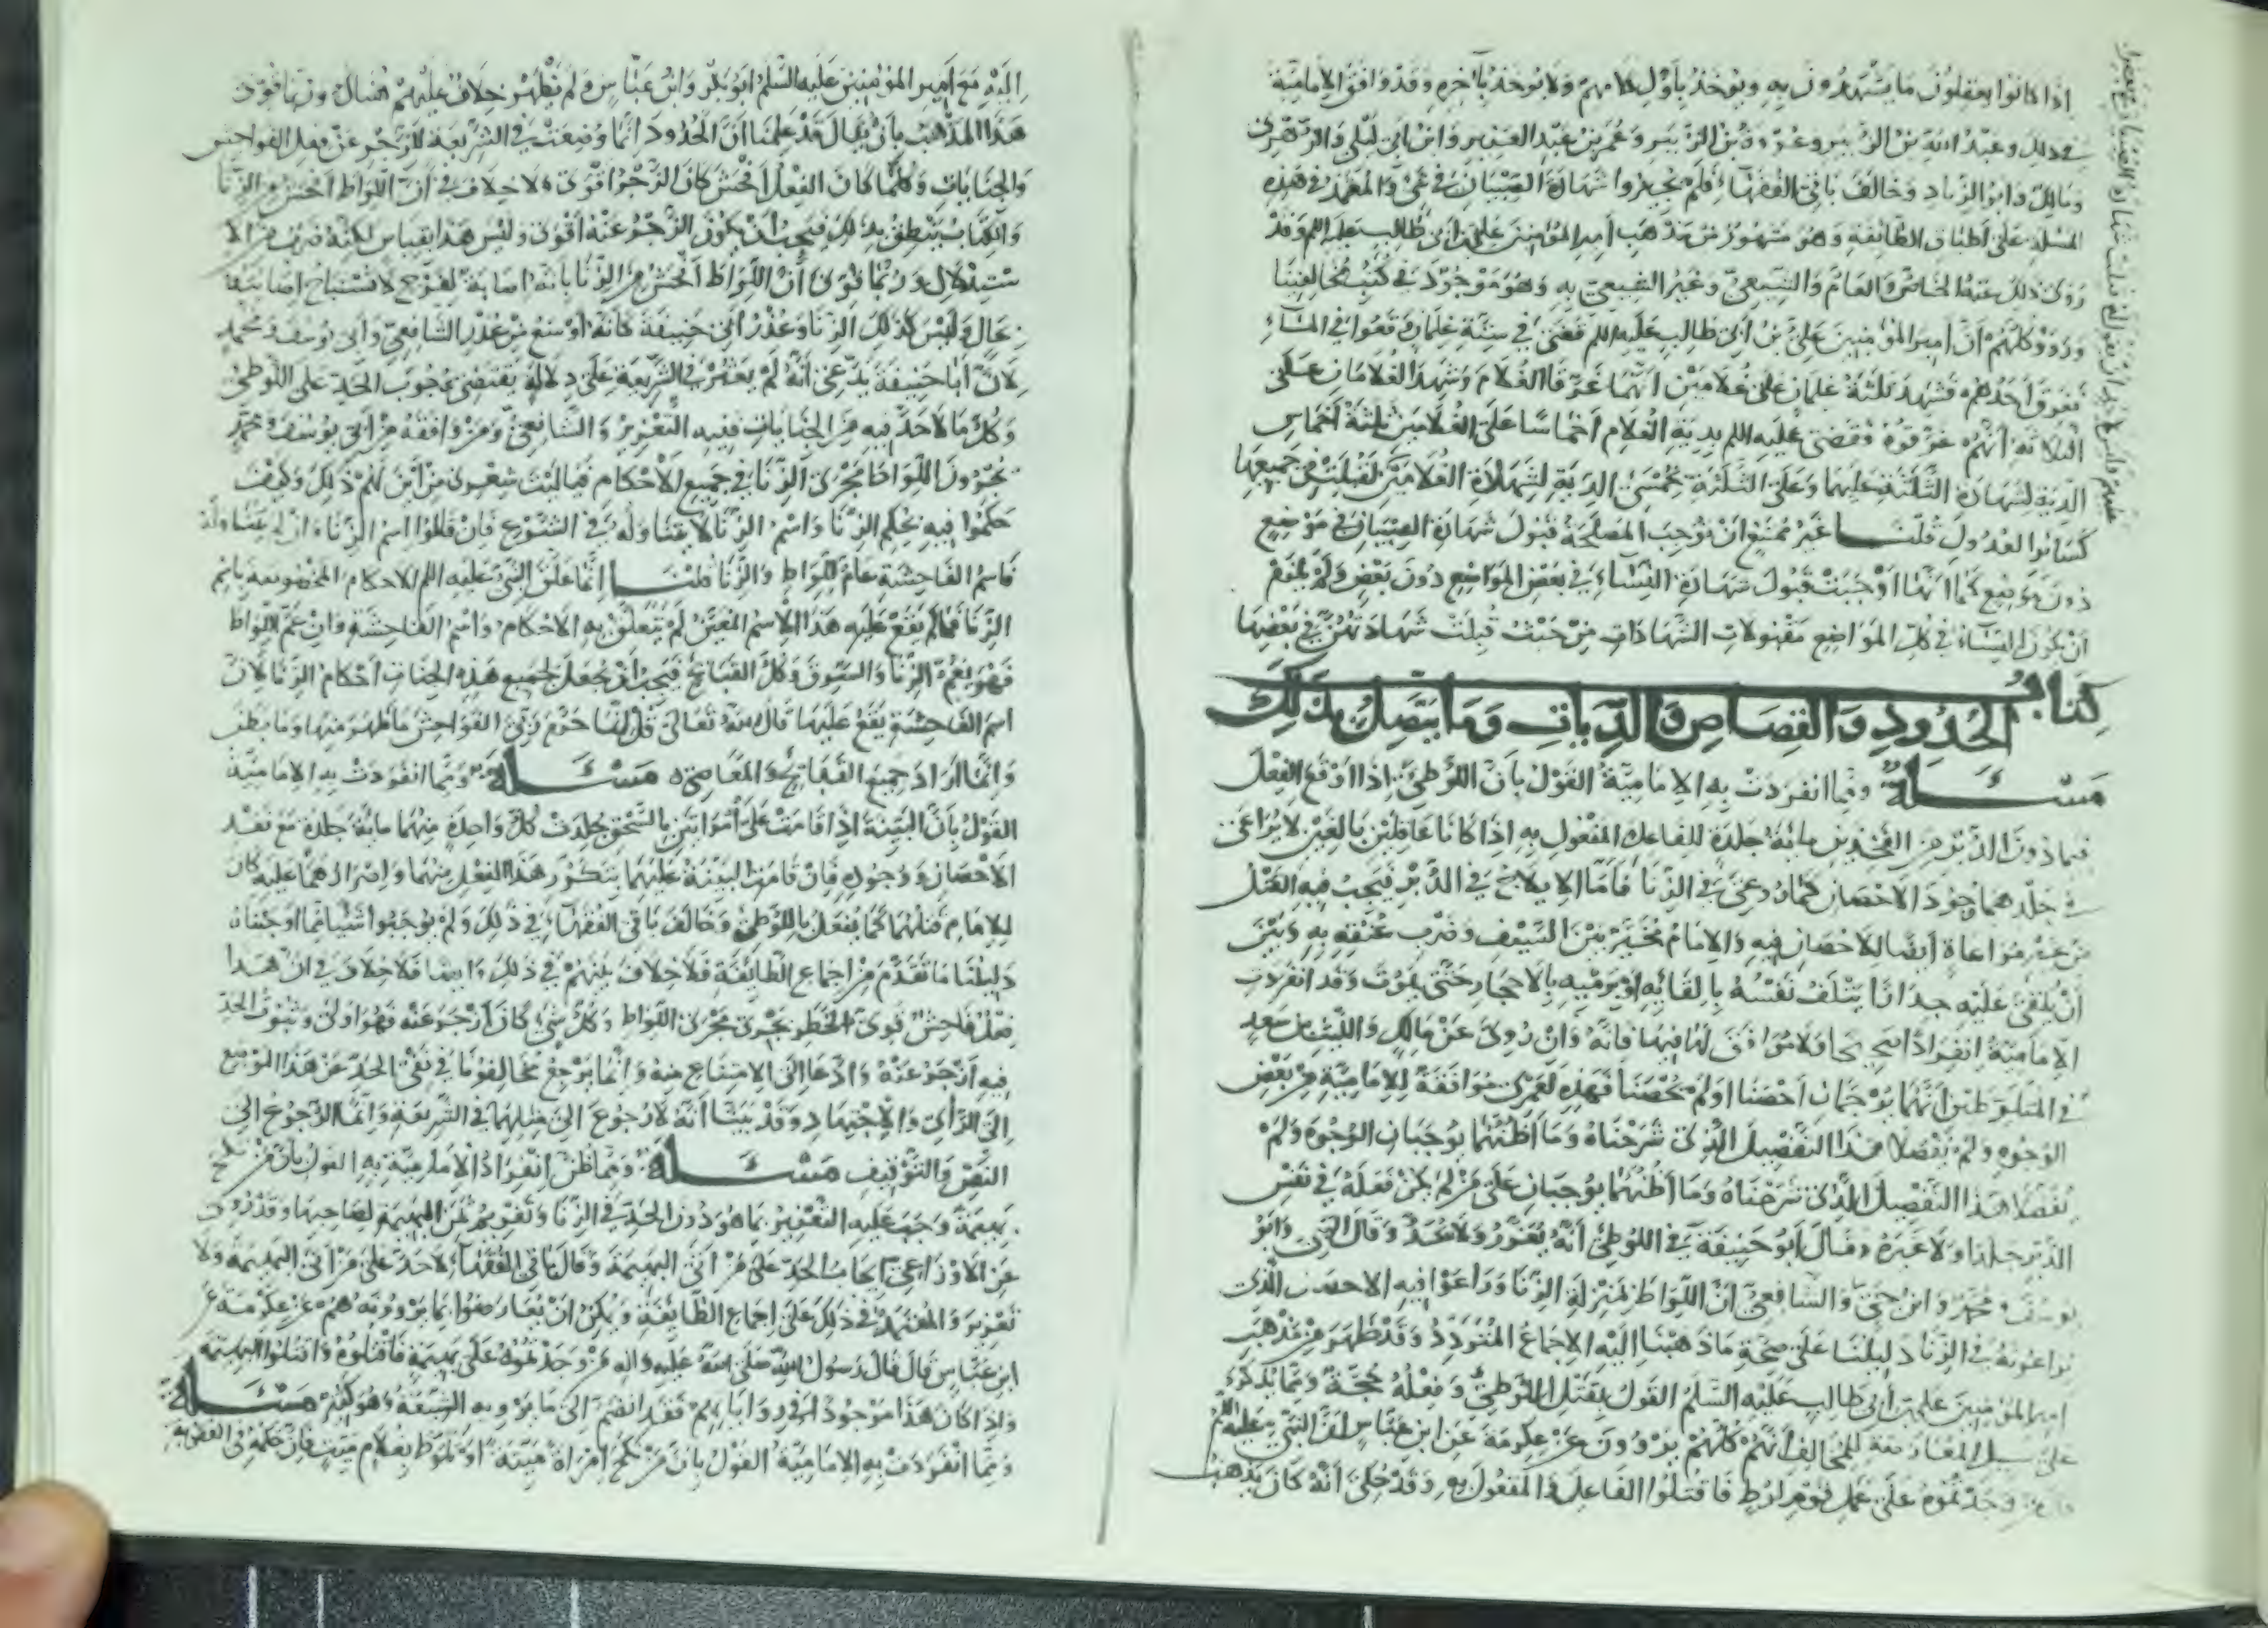 اذا كانوا يعقلون ما يشهدون به ويوخذ باول كلامهم ولا يوخذ بآخره وقد وافق الامامية
في ذلك وعبد الله بن الزبير وعروة بن الزبير وعمر بن عبد العزيز وابن ابي ليلى والزهري
ومالك وابو الزناد وخالف باقي الفقهاء فلم يجيزوا شهادة الصبيان في شيء والمعتمد في هذه
المسلة على اطباق الطائفة وهو مشهور من مذهب امير المؤمنين علي بن ابي طالب عليه اللم وقد
روى ذلك عنه الخاص والعام والشيعي وغير الشيعي به وهو موجود في كتب مخالفينا
ورووا كلهم ان امير المؤمنين علي بن ابي طالب عليه اللم قضى في ستة غلمان وقعوا في الماء
فغرق احدهم فشهد ثلثة غلمان على غلامين انهما غرقا الغلام وشهد الغلامان على
الثلاثة انهم غرقوه فقضى عليه اللم بدية الغلام اخماسا على الغلامين ثلثة اخماس
الدية لشهادة الثلثة عليهما وعلى الثلثة خمسي الدية لشهادة الغلامين لقبلت في جميعها
كسانوا العدول قلنا غير ممتنع ان توجب المصلحة قبول شهادة الصبيان في موضع
دون موضع كما انها اوجبت قبول شهادة النساء في بعض المواضع دون بعض ولم يلزم
ان يكون النساء في كل المواضع مقبولات الشهادات من حيث قبلت شهادتهن في بعضها
كتاب الحدود والقصاص والديات وما يتصل بذلك
مسئلة ومما انفردت به الامامية القول بان اللوطي اذا اوقع الفعل
فيما دون الدبر من الفخذين مائة جلدة للفاعل المفعول به اذا كانا عاقلين بالغين لا يراعى
في جلدهما وجود الاحصان كما روعي في الزنا فاما الايلاج في الدبر فيجب فيه القتل
من غير مراعاة ايضا للاحصان فيه والامام مخير بين السيف وضرب عنقه به وبين
ان يلقى عليه جدارا يتلف نفسه بالقائه او يرميه بالاحجار حتى يموت وقد انفردت
الامامية انفرادا صحيحا ولا موافق لها فيها فانه وان روى عن مالك والليث بن سعد
في المتلوطين انهما يرجمان احصنا او لم يحصنا فهذه لعمري موافقة للامامية من بعض
الوجوه ولم يفصلا هذا التفصيل الذي شرحناه وما اظنهما يوجبان الوجوه ولم
يفصلا هذا التفصيل الذي شرحناه وما اظنهما يوجبان على من لم يكن فعله في نفس
الدبر جلدا ولا غيره وقال ابو حنيفة في اللوطي انه يعزر ولا يحد وقال البتي وابو
يوسف ومحمد وابن حي والشافعي ان اللواط بمنزلة الزنا وراعوا فيه الاحصان الذي
يراعونه في الزنا دليلنا على صحة ما ذهبنا اليه الاجماع المتردد وقد ظهر من مذهب
امير المؤمنين علي بن ابي طالب عليه السلم القول بقتل اللوطي وفعله حجة ومما يذكر
على سبيل المعارضة للمخالف انهم كلهم يروون عن عكرمة عن ابن عباس ان النبي عليه اللم
وجدتموه على عمل قوم لوط فاقتلوا الفاعل والمفعول به وقد حكى انه كان يذهب
اليه مع امير المؤمنين عليه السلم ابو بكر وابن عباس ولم يظهر خلاف عليهم هنالك وربما قوي
هذا المذهب بان يقال قد علمنا ان الحدود انما وضعت في الشريعة للزجر عن فعل الفواحش
والجنايات وكلما كان الفعل افحش كان الزجر اقوى ولا خلاف في ان اللواط افحش من الزنا
والكتاب ينطق بذلك فيجب ان يكون الزجر عنه اقوى وليس هذا بقياس لكنه ضرب من الا
ستدلال وربما قوى ان اللواط افحش من الزنا بانه اصابة لفرج لا تستباح اصابته
بحال وليس كذلك الزنا وعذر ابي حنيفة كانه اوسع من عذر الشافعي وابي يوسف ومحمد
لان ابا حنيفة يدعي انه لم يعثر في الشريعة على دلالة يقتضي وجوب الحد على اللوطي
وكل ما لا حد فيه من الجنايات ففيه التعزير والشافعي ومن وافقه من ابي يوسف ومحمد
يجرون اللواط مجرى الزنا في جميع الاحكام فيا ليت شعري من اين لهم ذلك وكيف
حكموا فيه بحكم الزنا واسم الزنا لا يتناوله في الشرع فان قلوا اسم الزنا وان لم يتناوله
فاسم الفاحشة عام للواط والزنا قلنا انما علق النبي عليه اللم الاحكام المخصوصه باسم
الزنا فما لم يقع عليه هذا الاسم المعين لم يتعلق به الاحكام واسم الفاحشة وان عم اللواط
فهو يعم الزنا والسرق وكل القبائح فيجب ان يجعل لجميع هذه الجنايات احكام الزنا لان
اسم الفاحشة يقع عليها قال الله تعالى قل انما حرم ربي الفواحش ما ظهر منها وما بطن
وانما اراد جميع القبائح والمعاصي ه مسئلة ومما انفردت به الامامية
القول بان البينة اذا قامت على امراتين بالسحق جلدت كل واحدة منهما مائة جلدة مع فقد
الاحصان ووجوده فان قامت البينة عليهما بتكرر هذا الفعل منهما واصرارهما عليه كان
للامام قتلهما كما يفعل باللوطي وخالف باقي الفقهاء في ذلك ولم يوجبوا شيئا مما اوجبناه
دليلنا ما تقدم من اجماع الطائفة فلا خلاف بينهم في ذلك وايضا فلا خلاف في ان هذا
فعل فاحش قوي الحظر يجري مجرى اللواط وكل شيء كان ازجر عنه فهو اولى وثبوت الحد
فيه ازجر عنه وادعا الى الامتناع منه وانما يرجع مخالفونا في نفي الحد عن هذا الموضع
الى الراي والاجتهاد وقد بينا انه لا رجوع الى مثلهما في الشريعة وانما الرجوع الى
النص والتوقيف مسئلة ومما ظن انفراد الامامية به القول بان من نكح
بهيمة وجب عليه التعزير بما هو دون الحد في الزنا وتغريم ثمن البهيمة لصاحبها وقد روى
عن الاوزاعي ايجاب الحد على من اتى البهيمة وقال باقي الفقهاء لا حد على من اتى البهيمة ولا
تعزير والمعتمد في ذلك على اجماع الطائفة ويمكن ان يعارضوا بما يروونه هم عن عكرمة عن
ابن عباس قال قال رسول الله صلى الله عليه واله من وجدتموه على بهيمة فاقتلوه واقتلوا البهيمة
واذا كان هذا موجودا في رواياتهم فقد انضم الى ما يرويه الشيعة وهو كثير مسئلة
ومما انفردت به الامامية القول بان من نكح امراة ميتة او تلوط بغلام ميت فان حكمه في العقوبة